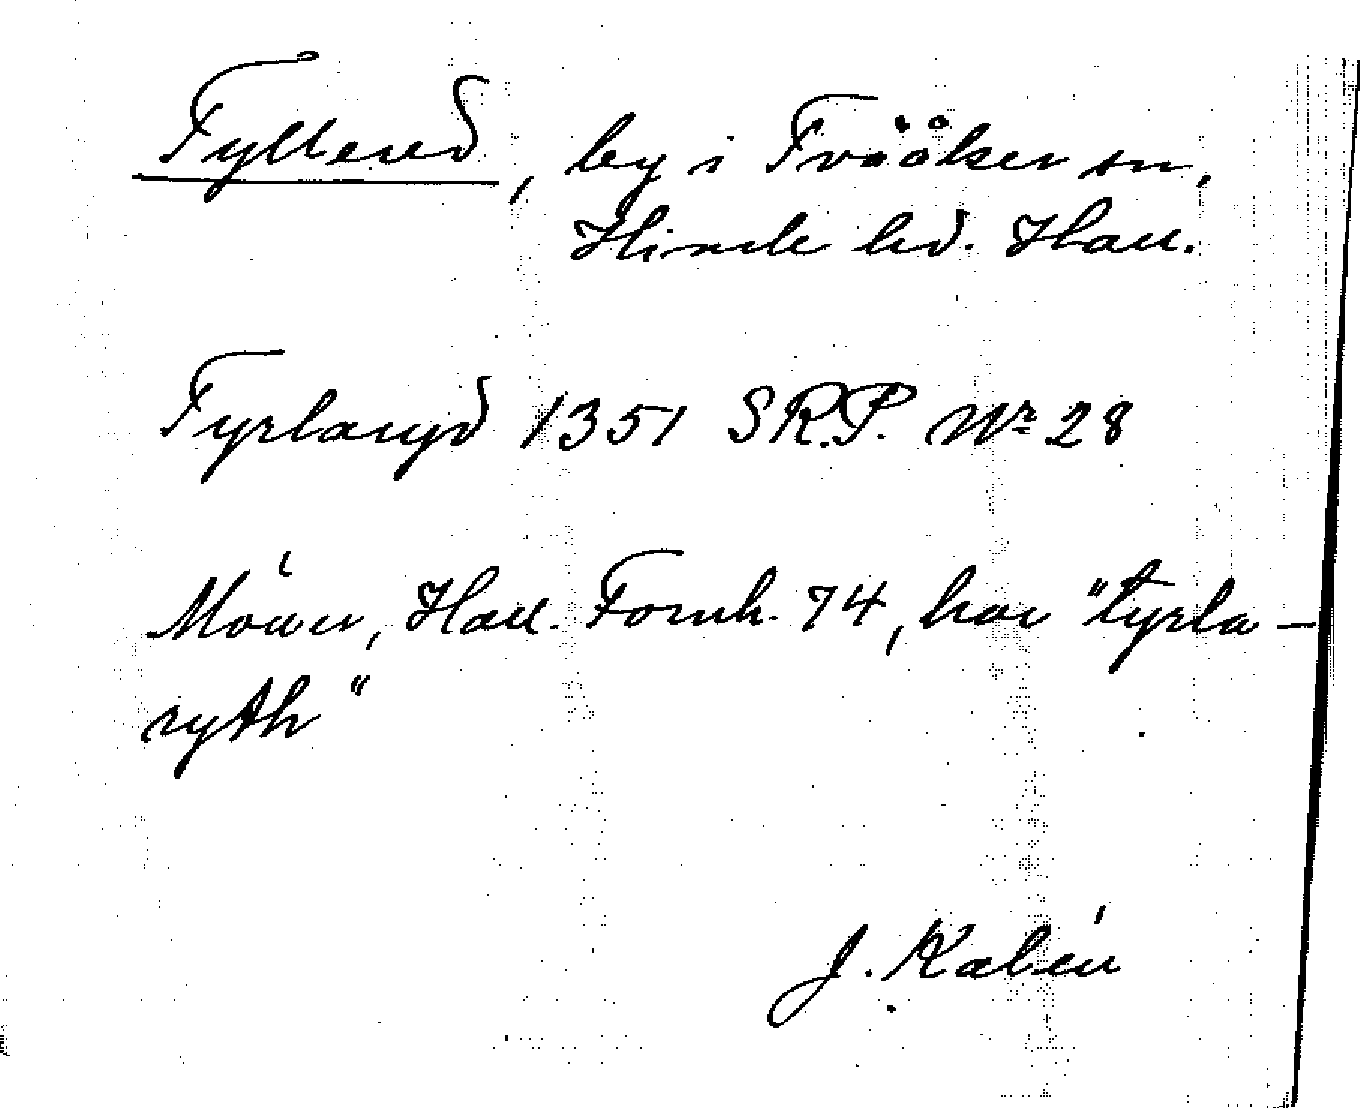 Tyllered, by i Tvååker sn,
Himle hd. Hall.
Tyrlaryd 1351 SRP. Nr 28
Möller, Hall. Fornh. 74, har "tyrla-
ryth"
J. Kalén